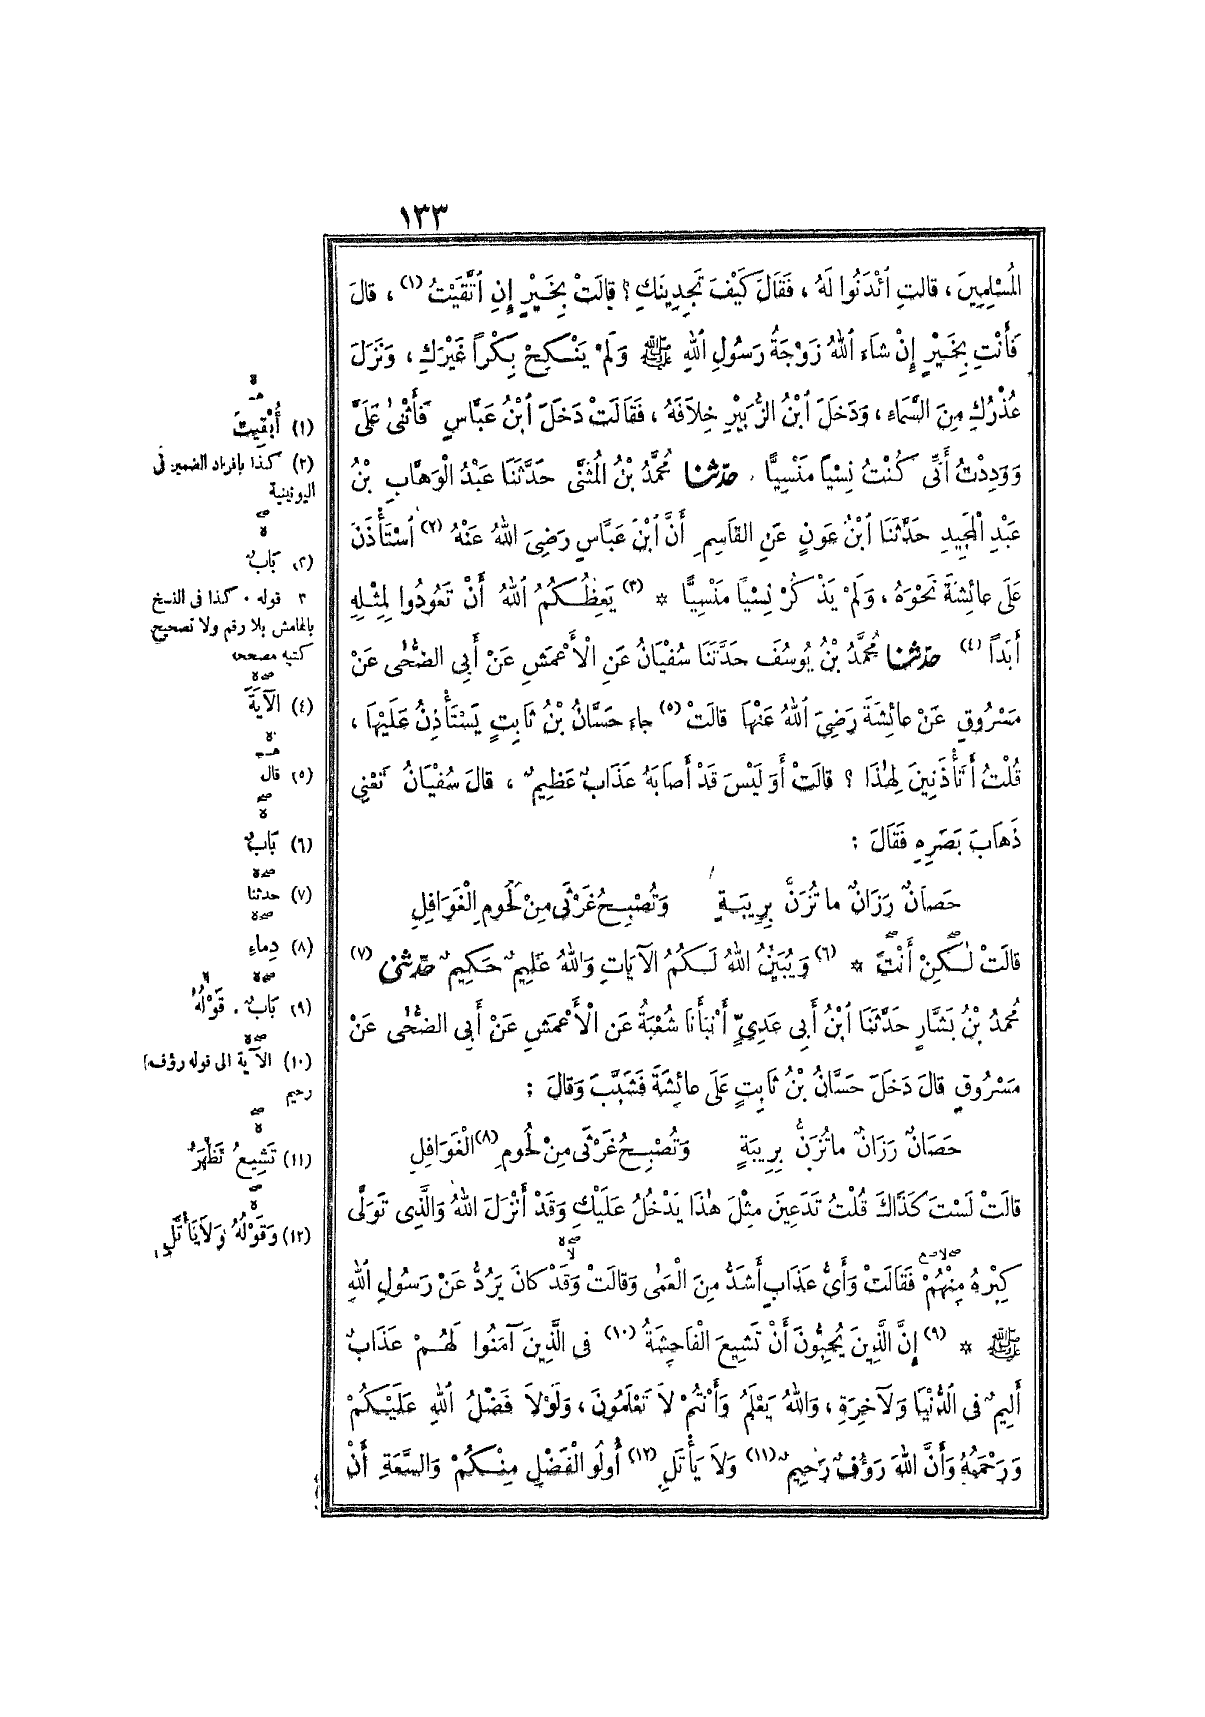 ١٣٣
الْمُسْلِمِينَ ، قالَتِ ٱئْذَنُوا لَهُ ، فَقَالَ كَيْفَ تَجِدِينَكِ ؟ قالَتْ بِخَيْرٍ إِنِ ٱتَّقَيْتُ (١) ، قالَ
فَأَنْتِ بِخَيْرٍ إِنْ شَاءَ ٱللهُ زَوْجَةُ رَسُولِ ٱللهِ ﷺ وَلَمْ يَنْكِحْ بِكْراً غَيْرَكِ ، وَنَزَلَ
عُذْرُكِ مِنَ السَّمَاءِ ، وَدَخَلَ ٱبْنُ الزُّبَيْرِ خِلاَفَهُ ، فَقَالَتْ دَخَلَ ٱبْنُ عَبَّاسٍ فَأَثْنٰى عَلَىَّ
وَوَدِدْتُ أَنِّى كُنْتُ نِسْياً مَنْسِيًّا . حدّثنا مُحَمَّدُ بْنُ الْمُثَنَّى حَدَّثَنَا عَبْدُ الْوَهَّابِ بْنُ
عَبْدِ الْمَجِيدِ حَدَّثَنَا ٱبْنُ عَوْنٍ عَنِ الْقَاسِمِ أَنَّ ٱبْنَ عَبَّاسٍ رَضِىَ اللهُ عَنْهُ (٢) ٱسْتَأْذَنَ
عَلَى عائِشَةَ نَحْوَهُ ، وَلَمْ يَذْكُرْ نِسْياً مَنْسِيًّا * (٣) يَعِظُكُمُ ٱللهُ أَنْ تَعُودُوا لِمِثْلِهِ
أَبَداً (٤) حدّثنا مُحَمَّدُ بْنُ يُوسُفَ حَدَّثَنَا سُفْيَانُ عَنِ الْأَعْمَشِ عَنْ أَبِى الضُّحٰى عَنْ
مَسْرُوقٍ عَنْ عائِشَةَ رَضِىَ اللهُ عَنْهَا قالَتْ (٥) جاءَ حَسَّانُ بْنُ ثَابِتٍ يَسْتَأْذِنُ عَلَيْهَا ،
قُلْتُ أَتَأْذَنِينَ لِهٰذَا ؟ قالَتْ أَوَلَيْسَ قَدْ أَصَابَهُ عَذَابٌ عَظِيمٌ ، قالَ سُفْيَانُ تَعْنِى
ذَهَابَ بَصَرِهِ فَقَالَ :
حَصَانٌ رَزَانٌ ما تُزَنُّ بِرِيبَةٍ وَتُصْبِحُ غَرْثَى مِنْ لُحُومِ الْغَوَافِلِ
قالَتْ لٰكِنْ أَنْتَ * (٦) وَيُبَيِّنُ اللهُ لَكُمُ الْآيَاتِ وَاللهُ عَلِيمٌ حَكِيمٌ حدّثنى (٧)
مُحَمَّدُ بْنُ بَشَّارٍ حَدَّثَنَا ٱبْنُ أَبِى عَدِيٍّ أَنْبَأَنَا شُعْبَةُ عَنِ الْأَعْمَشِ عَنْ أَبِى الضُّحٰى عَنْ
مَسْرُوقٍ قالَ دَخَلَ حَسَّانُ بْنُ ثَابِتٍ عَلَى عائِشَةَ فَشَبَّبَ وَقالَ :
حَصَانٌ رَزَانٌ ما تُزَنُّ بِرِيبَةٍ وَتُصْبِحُ غَرْثَى مِنْ لُحُومِ (٨) الْغَوَافِلِ
قالَتْ لَسْتَ كَذَاكَ قُلْتُ تَدَعِينَ مِثْلَ هٰذَا يَدْخُلُ عَلَيْكِ وَقَدْ أَنْزَلَ اللهُ وَالَّذِى تَوَلَّى
كِبْرَهُ مِنْهُمْ فَقَالَتْ وَأَىُّ عَذَابٍ أَشَدُّ مِنَ الْعَمٰى وَقالَتْ وَقَدْ كانَ يَرُدُّ عَنْ رَسُولِ ٱللهِ
ﷺ * (٩) إِنَّ الَّذِينَ يُحِبُّونَ أَنْ تَشِيعَ الْفَاحِشَةُ (١٠) فِى الَّذِينَ آمَنُوا لَهُمْ عَذَابٌ
أَلِيمٌ فى الدُّنْيَا وَلآخِرَةِ ، وَاللهُ يَعْلَمُ وَأَنْتُمْ لاَ تَعْلَمُونَ ، وَلَوْلاَ فَضْلُ ٱللهِ عَلَيْكُمْ
وَرَحْمَتُهُ وَأَنَّ اللهَ رَؤُفٌ رَحِيمٌ (١١) وَلاَ يَأْتَلِ (١٢) أُولُو الْفَضْلِ مِنْكُمْ وَالسَّعَةِ أَنْ
(١) أُبْقِيتَ
(٢) كذا بافراد الضمير فى
اليونينية
(٣) بَابٌ
٣ قوله . كذا فى النسخ
بالهامش بلا رقم ولا تصحيح
كتبه مصححه
(٤) الآيَةَ
(٥) قال
(٦) بَابٌ
(٧) حدثنا
(٨) دِماءِ
(٩) بَابٌ . قَوْلُهُ
(١٠) الآية الى قوله رؤف
رحيم
(١١) تَشِيعُ تَظْهَرُ
(١٢) وَقَوْلُهُ وَلاَ يَأْتَلِ